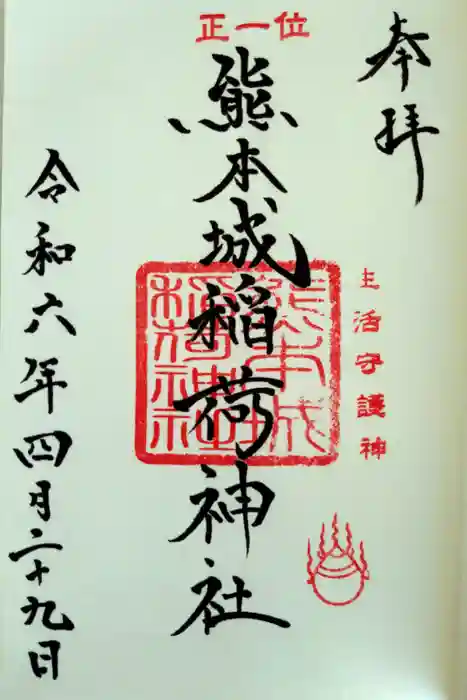 奉拝
生活守護神
正一位
熊本城稲荷神社
熊本城
稲荷神社
令和六年四月二十九日